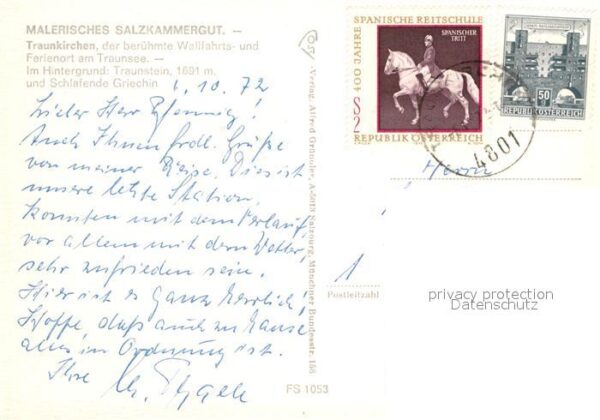 MALERISCHES SALZKAMMERGUT. —
Traunkirchen, der berühmte Wallfahrts- und
Ferienort am Traunsee. —
Im Hintergrund: Traunstein, 1691 m,
und Schlafende Griechin
1. 10. 72
Lieber Herr Pfennig!
Auch Ihnen frdl. Grüße
von meiner Reise. Dies ist
unsere letzte Station.
Konnten mit dem Verlauf,
vor allem mit dem Wetter,
sehr zufrieden sein.
Hier ist es ganz herrlich!
Hoffe, daß auch zu Hause
alles in Ordnung ist.
Ihre
Verlag Alfred Gründler, A-5013 Salzburg, Münchner Bundesstr. 156
FS 1053
400 JAHRE
SPANISCHE REITSCHULE
SPANISCHER
TRITT
S 2
REPUBLIK ÖSTERREICH
50
REPUBLIK ÖSTERREICH
4801
Herrn
1
Postleitzahl
privacy protection
Datenschutz